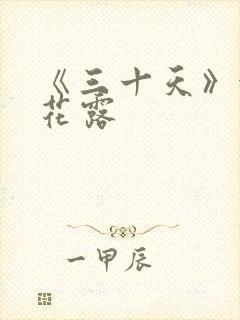 《三十天》
花露
一甲辰